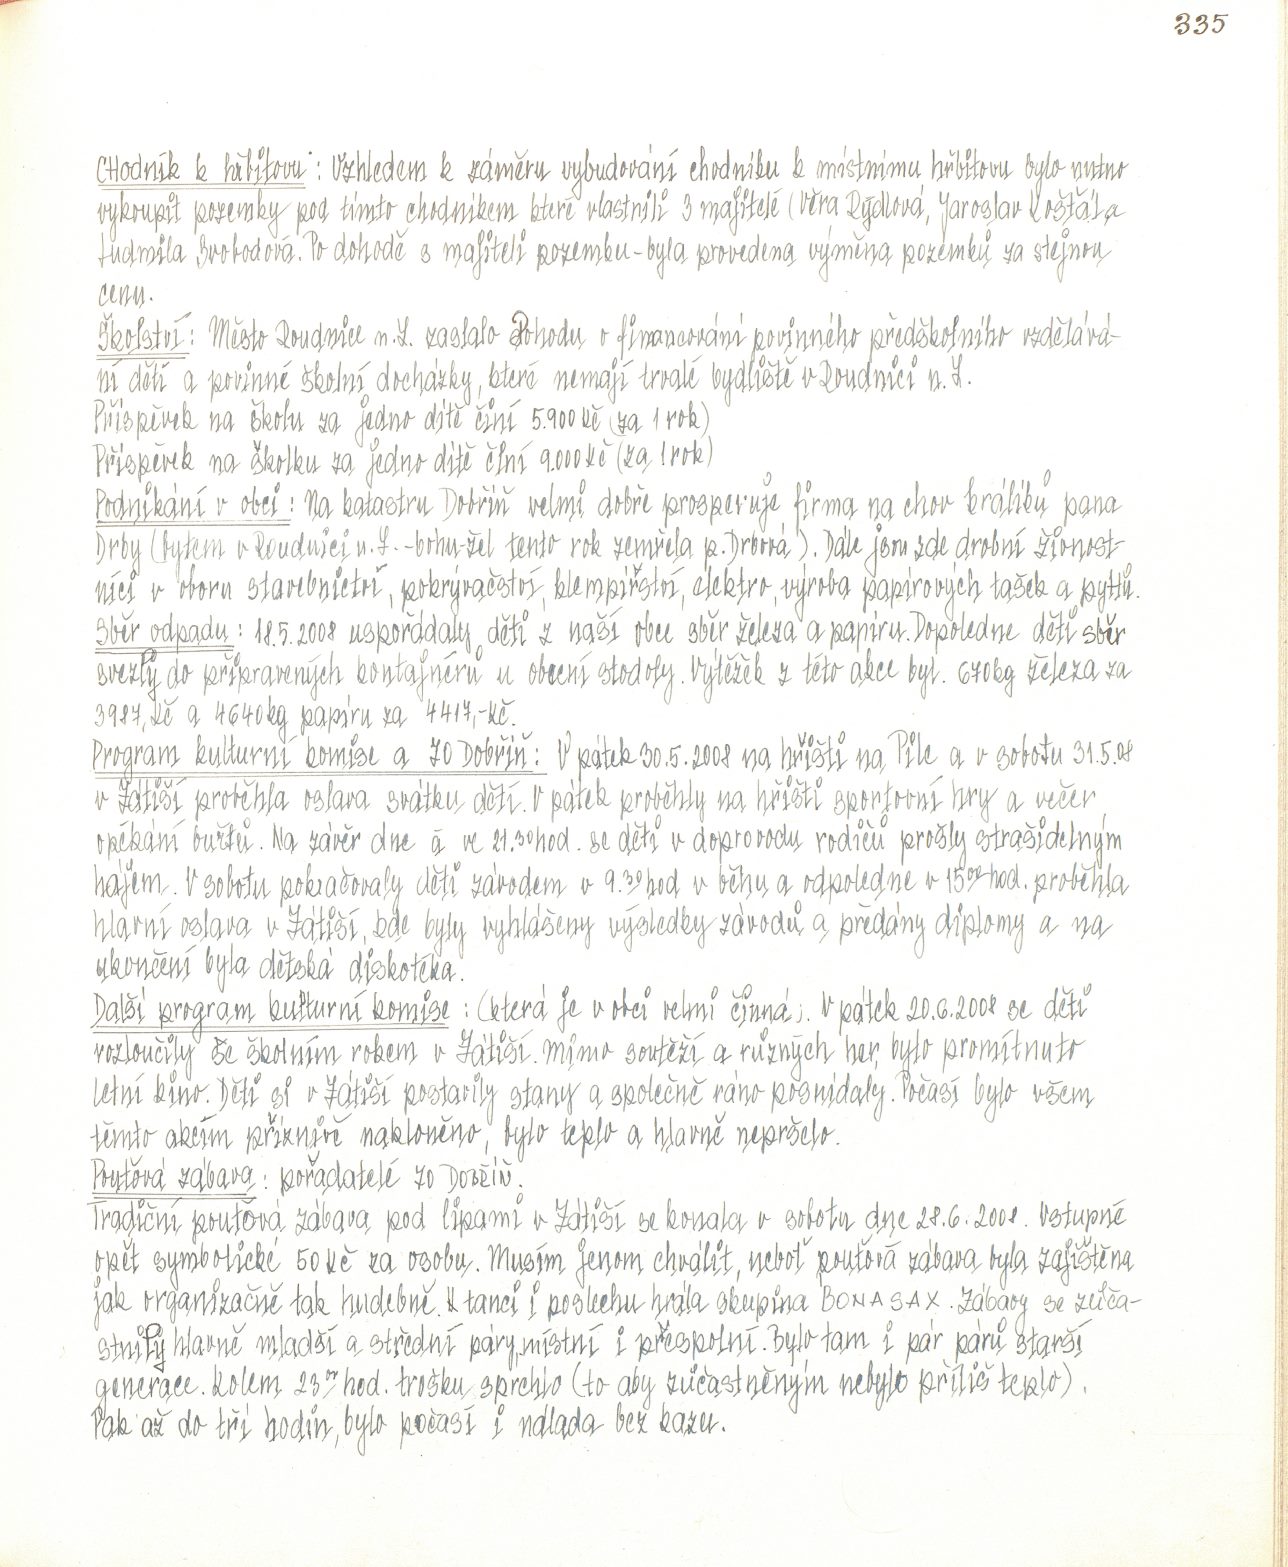 335
CHodník k hřbitovu : Vzhledem k záměru vybudování chodníku k místnímu hřbitovu bylo nutno
vykoupit pozemky pod tímto chodníkem které vlastnili 3 majitelé (Věra Rýdlová, Jaroslav Košťál a
Ludmila Svobodová. Po dohodě s majiteli pozemku - byla provedena výměna pozemků za stejnou
cenu.
Školství : Město Roudnice n.L. zaslalo Dohodu o financování povinného předškolního vzdělává-
ní dětí a povinné školní docházky, které nemají trvalé bydliště v Roudnici n.L.
Příspěvek na školu za jedno dítě činí 5.900 Kč (za 1 rok)
Příspěvek na školku za jedno dítě činí 9.000 Kč (za 1 rok)
Podnikání v obci : Na katastru Dobříň velmi dobře prosperuje firma na chov králíků pana
Drby (bytem v Roudnici n.L. - bohužel tento rok zemřela p. Drbová). Dále jsou zde drobní živnost-
níci v oboru stavebnictví, pokrývačství, klempířství, elektro, výroba papírových tašek a pytlů.
Sběr odpadu : 18.5.2008 uspořádaly děti z naší obce sběr železa a papíru. Dopoledne děti sběr
svezly do připravených kontajnérů u obecní stodoly. Výtěžek z této akce byl. 670kg železa za
3987,Kč a 4640kg papíru za 4417,-Kč.
Program kulturní komise a ZO Dobříň : V pátek 30.5.2008 na hřišti na Pile a v sobotu 31.5.08
v Zátiší proběhla oslava svátku dětí. V pátek proběhly na hřišti sportovní hry a večer
opékání buřtů. Na závěr dne a ve 21.30 hod. se děti v doprovodu rodičů prošly strašidelným
hájem. V sobotu pokračovaly děti závodem v 9.30 hod v běhu a odpoledne v 15oo hod. proběhla
hlavní oslava v Zátiší, kde byly vyhlášeny výsledky závodů a předány diplomy a na
ukončení byla dětská diskotéka.
Další program kulturní komise : (která je v obci velmi činná). V pátek 20.6.2008 se děti
rozloučily se školním rokem v Zátiší. Mimo soutěží a různých her, bylo promítnuto
letní kino. Děti si v Zátiší postavily stany a společně ráno posnídaly. Počasí bylo všem
těmto akcím příznivě nakloněno, bylo teplo a hlavně nepršelo.
Pouťová zábava : pořadatelé ZO Dobříň.
Tradiční pouťová zábava pod lipami v Zátiší se konala v sobotu dne 28.6.2008. Vstupné
opět symbolické 50 Kč za osobu. Musím jenom chválit, neboť pouťová zábava byla zajištěna
jak organizačně tak hudebně. K tanci i poslechu hrála skupina BONASAX. Zábavy se zúča-
stnily hlavně mladší a střední páry, místní i přespolní. Bylo tam i pár párů starší
generace. Kolem 23oo hod. trošku sprchlo (to aby zúčastněným nebylo příliš teplo).
Pak až do tří hodin, bylo počasí i nálada bez kazu.